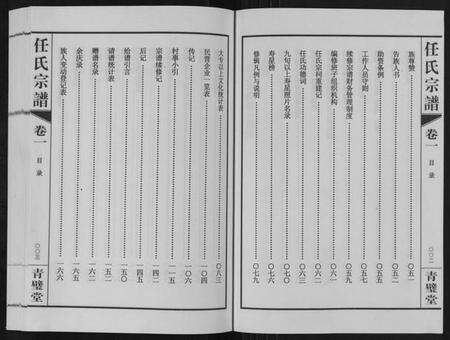 任氏宗譜
卷一
目录
〇〇二
青璧堂
族尊赞 〇五一
告族人书 〇五二
助资备例 〇五四
工作人员守则 〇五五
续修宗谱财务管理制度 〇五七
编修班子组织机构 〇五九
任氏宗祠重建记 〇六〇
任氏功德词 〇六三
九旬以上寿星照片名录
寿星榜 〇七六
修缵凡例与说明 〇七九
大专以上文化统计表 〇八三
民营企业一览表 一〇四
传记 一〇六
村事小引 一一五
宗谱续修记 一四二
后记 一四五
给谱引言 一五〇
请谱统计表 一五一
赠谱名录 一六二
余庆录 一六五
族人变动登记表 一六六
任氏宗譜
卷一
目录
〇〇三
青璧堂